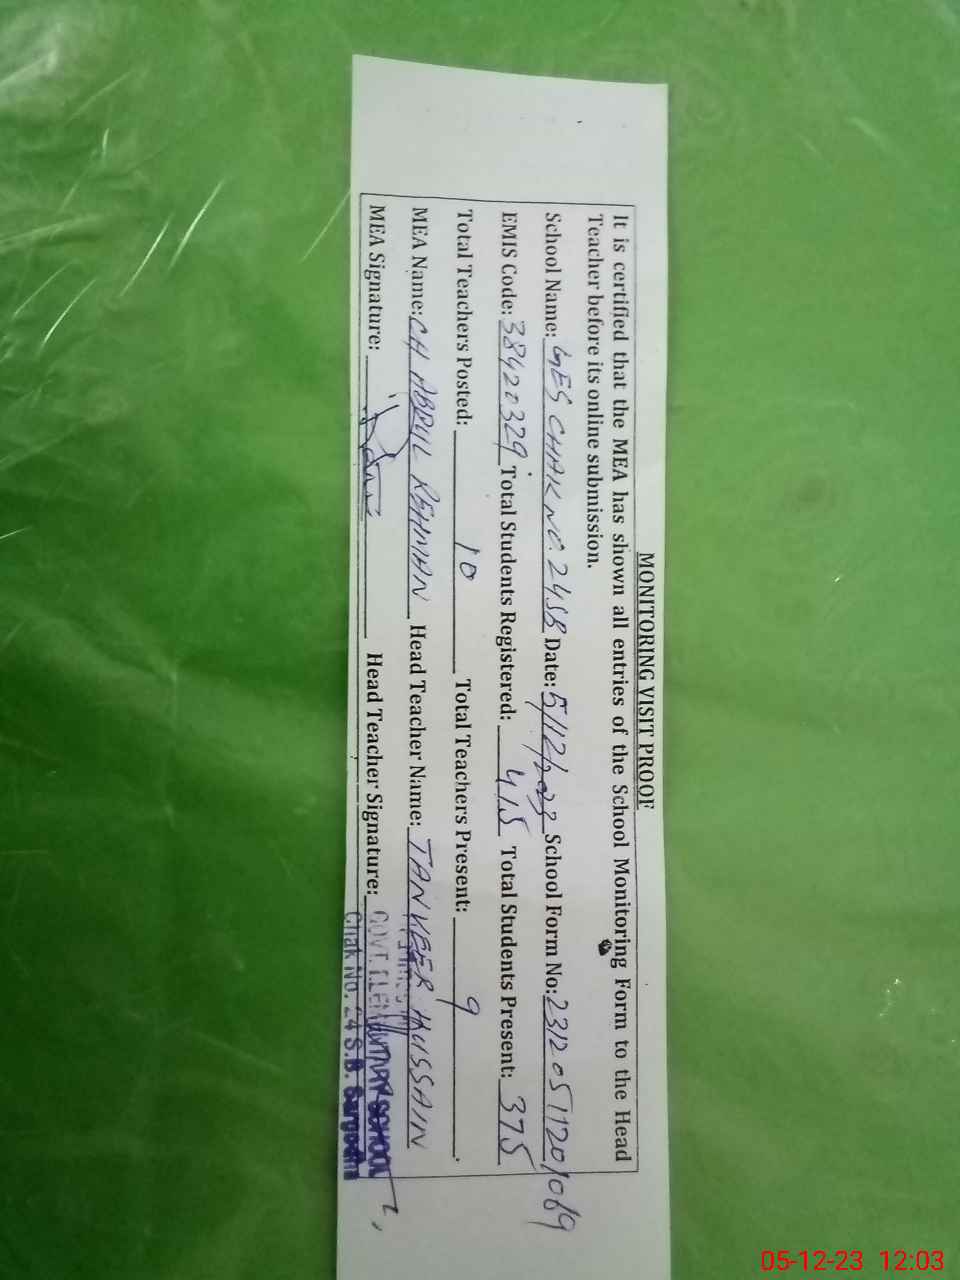 MONITORING VISIT PROOF
It is certified that the MEA has shown all entries of the School Monitoring Form to the Head
Teacher before its online submission.
School Name: GES CHAK NO. 24SB Date: 5/12/2023 School Form No: 23120511201069
EMIS Code: 38420329 Total Students Registered: 415 Total Students Present: 375
Total Teachers Posted: 10 Total Teachers Present: 9
MEA Name: CH ABDUL REHMAN Head Teacher Name: TANVEER HUSSAIN
MEA Signature: Head Teacher Signature:
GOVT. ELEMENTARY SCHOOL
Chak No. 24 S.B. Sargodha
05-12-23 12:03